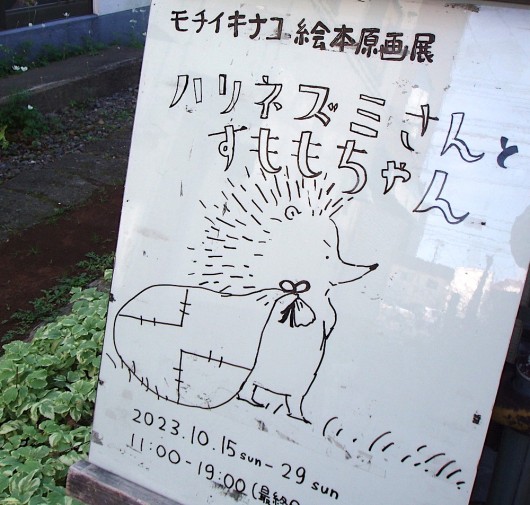 モチイキナコ 絵本原画展
ハリネズミさんと
すももちゃん
2023.10.15 sun - 29 sun
11:00 - 19:00 (最終